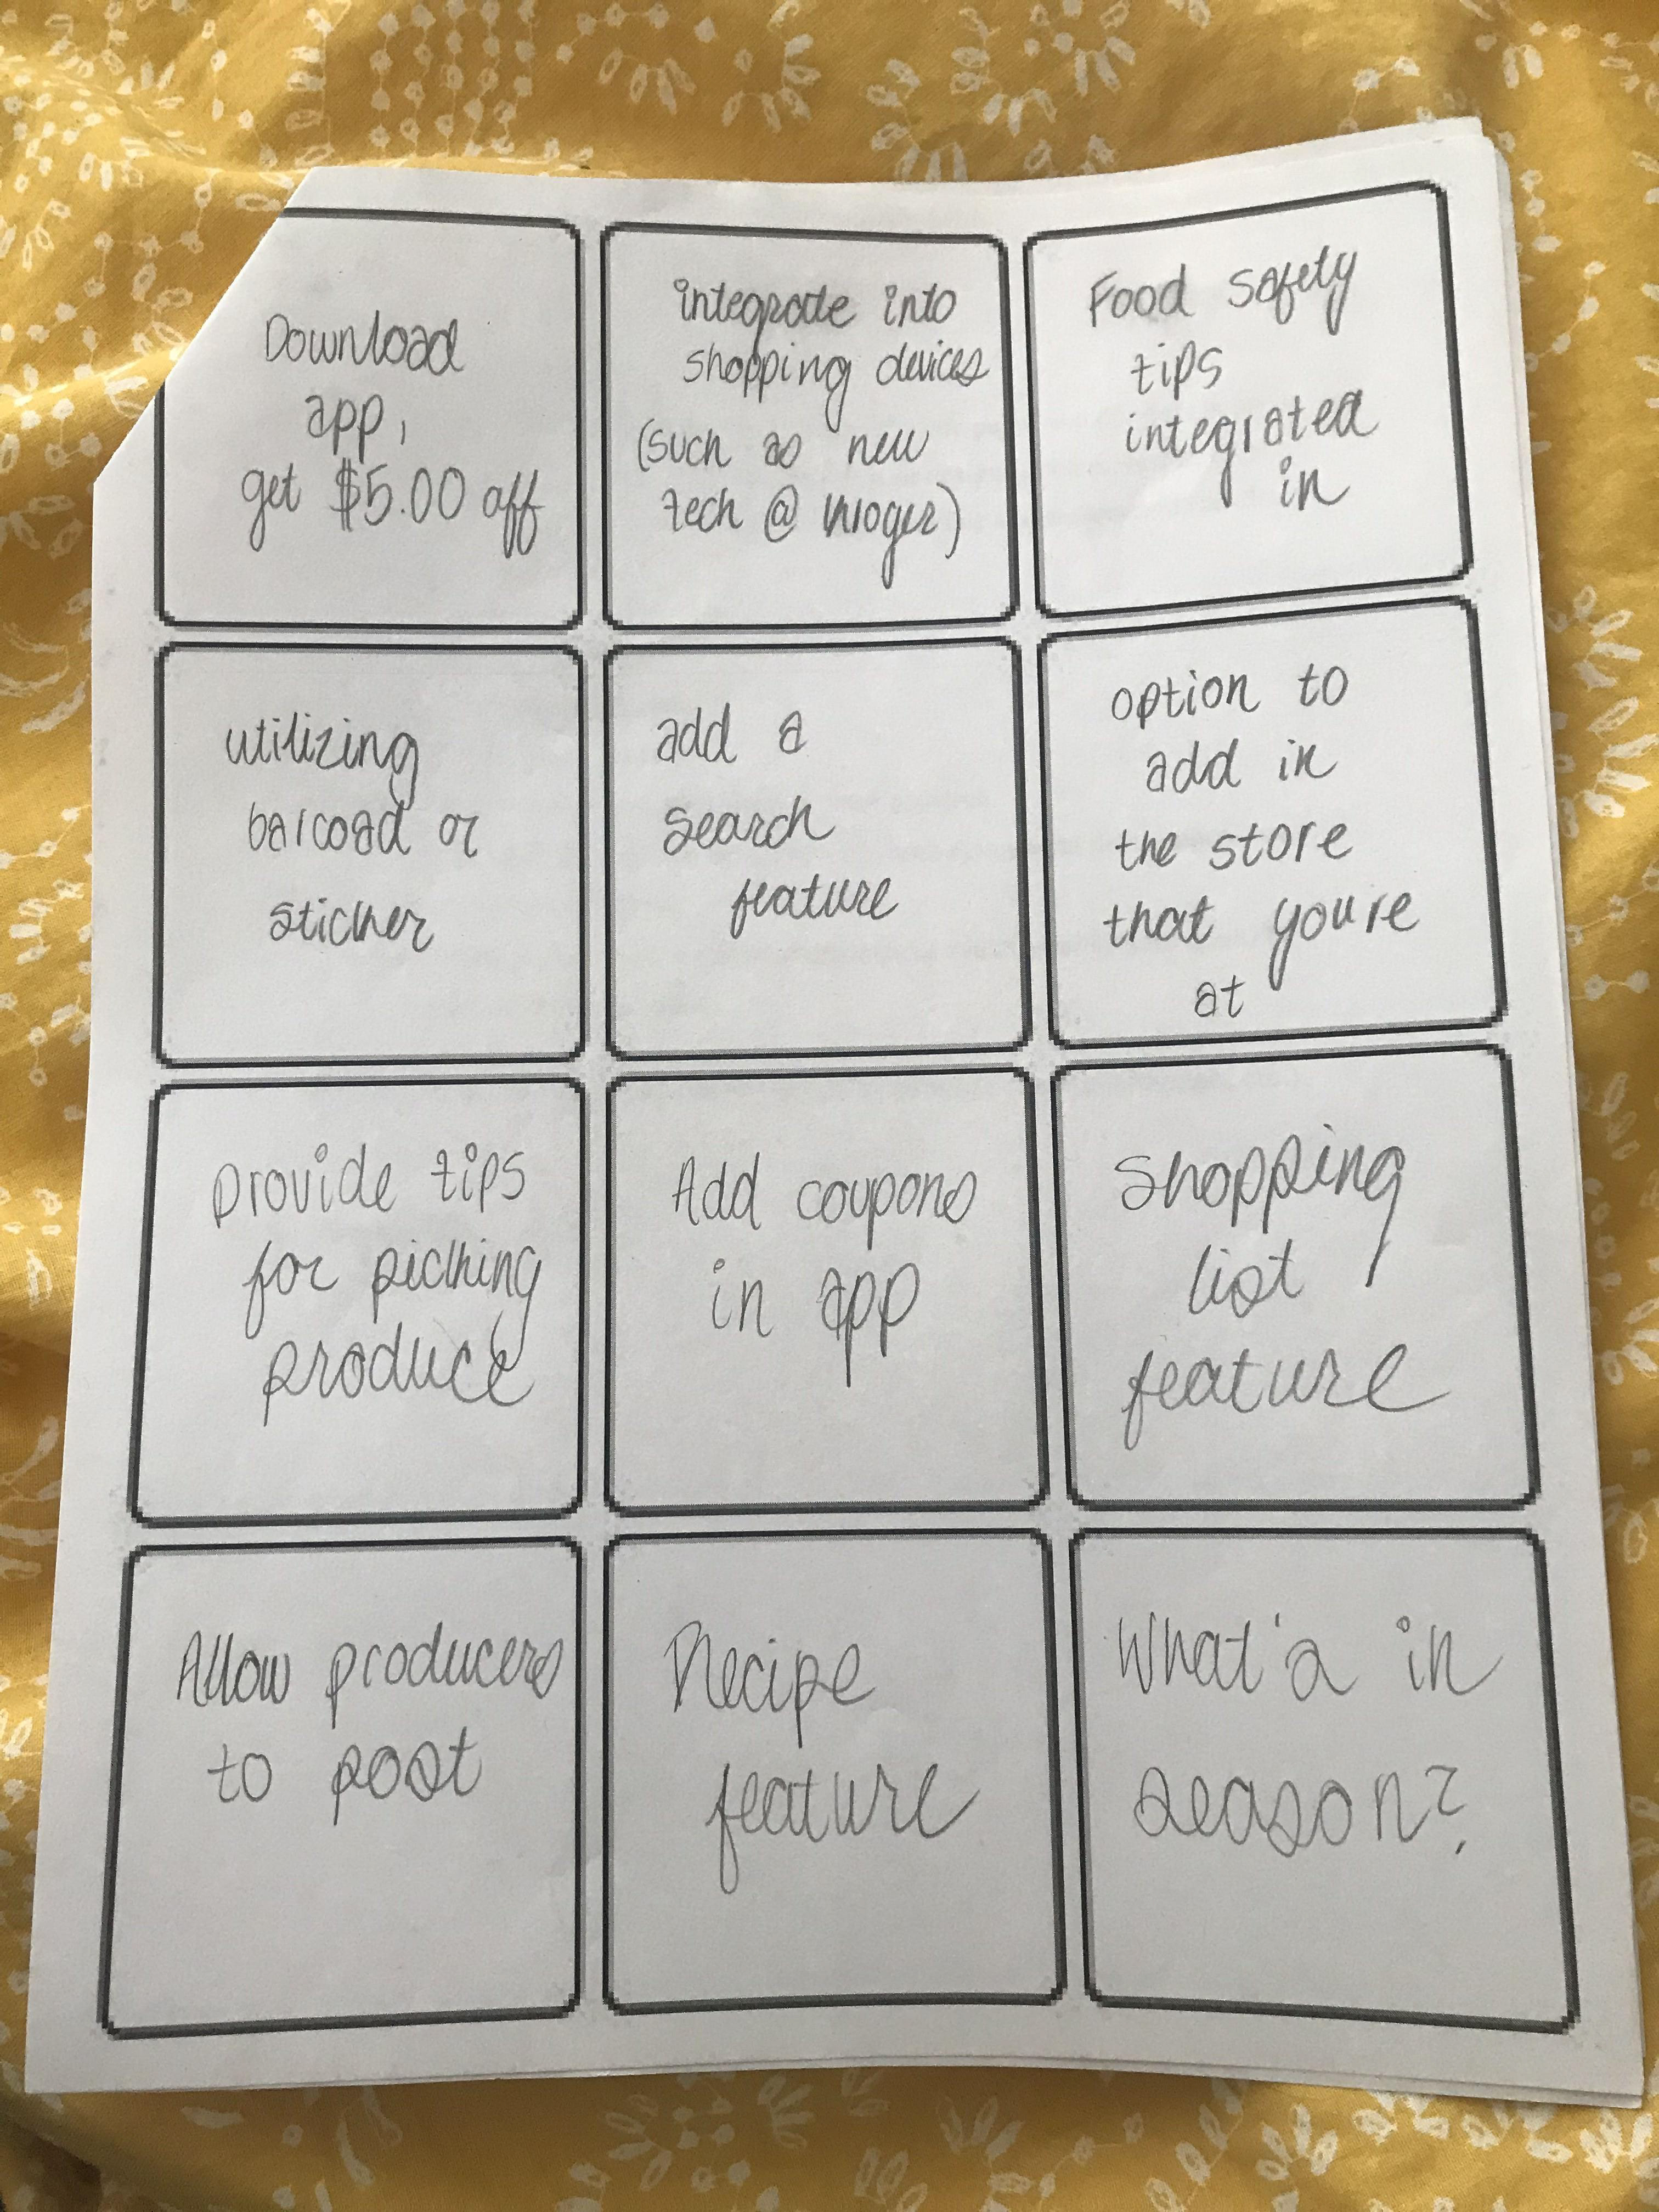 Download
app,
get $5.00 off
integrate into
shopping devices
(such as new
tech @ Kroger)
Food safety
tips
integrated
in
utilizing
barcoad or
sticker
add a
search
feature
option to
add in
the store
that youre
at
Provide tips
for picking
produce
Add coupons
in app
Shopping
list
feature
Allow producers
to post
Recipe
feature
What's in
season?